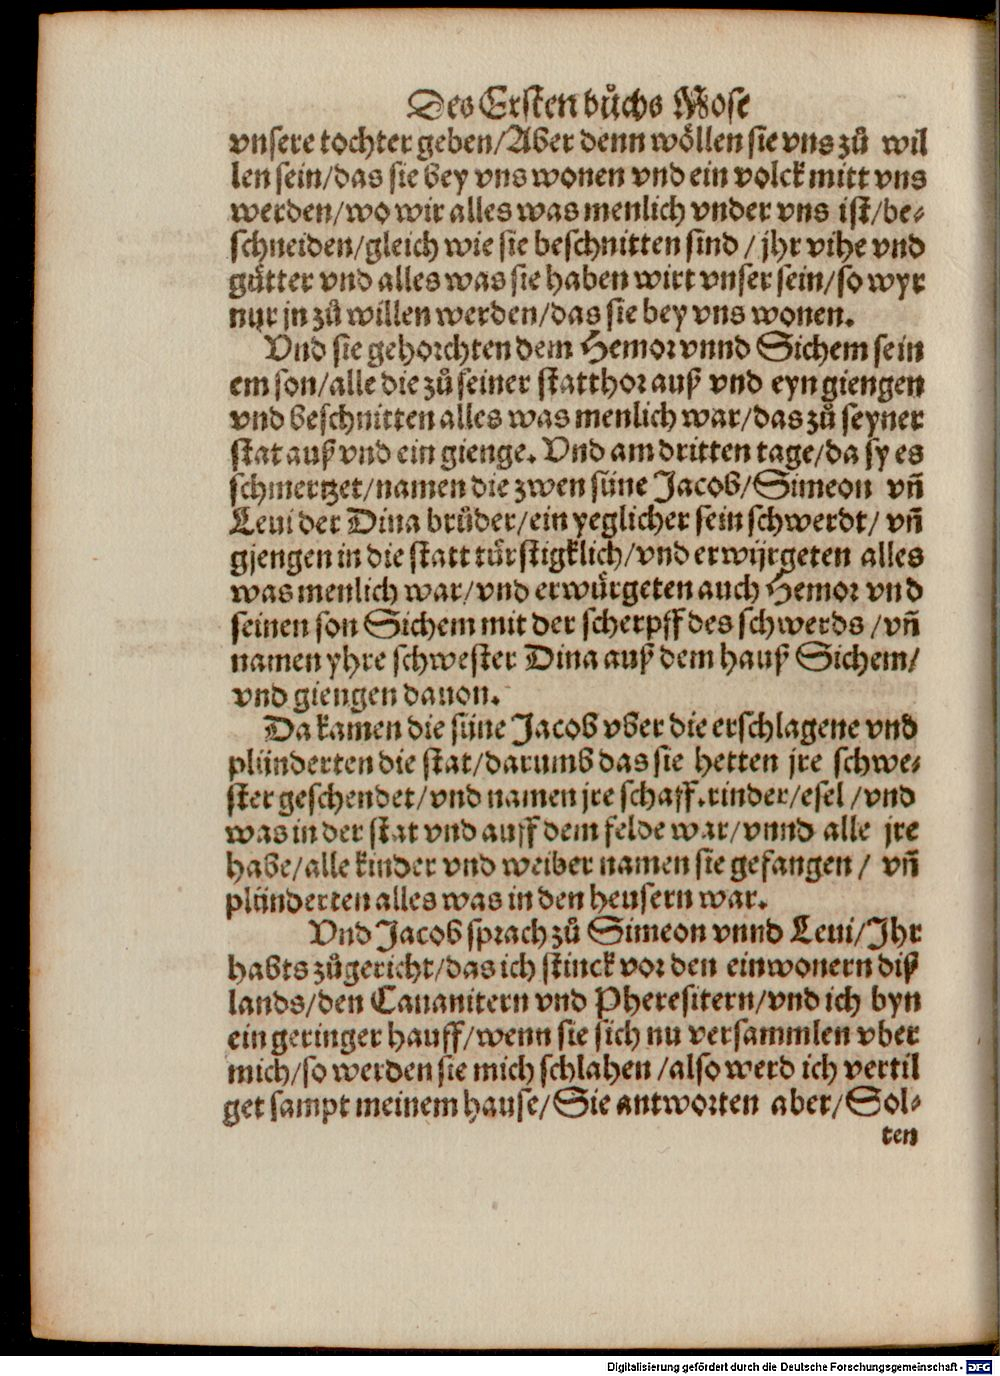 Des Ersten bůchs Mose
vnsere tochter geben/Aber denn wöllen sie vns zů wil
len sein/das sie bey vns wonen vnd ein volck mitt vns
werden/wo wir alles was menlich vnder vns ist/be-
schneiden/gleich wie sie beschnitten sind / jhr vihe vnd
gütter vnd alles was sie haben wirt vnser sein/so wyr
nur jn zů willen werden/das sie bey vns wonen.
Vnd sie gehorchten dem Hemor vnnd Sichem sein
em son/alle die zů seiner statthor auß vnd eyn giengen
vnd beschnitten alles was menlich war/das zů seyner
stat auß vnd ein gienge. Vnd am dritten tage/da sy es
schmertzet/namen die zwen süne Jacob/Simeon vñ
Leui der Dina brüder/ein yeglicher sein schwerdt/ vñ
gjengen in die statt türstigklich/vnd erwijrgeten alles
was menlich war/vnd erwürgeten auch Hemor vnd
seinen son Sichem mit der scherpff des schwerds /vñ
namen yhre schwester Dina auß dem hauß Sichem/
vnd giengen dauon.
Da kamen die süne Jacob vber die erschlagene vnd
plünderten die stat/darumb das sie hetten jre schwe-
ster geschendet/vnd namen jre schaff.rinder/esel /vnd
was in der stat vnd auff dem felde war/vnnd alle jre
habe/alle kinder vnd weiber namen sie gefangen / vñ
plünderten alles was in den heusern war.
Vnd Jacob sprach zů Simeon vnnd Leui/Jhr
habts zůgericht/das ich stinck vor den einwonern diß
lands/den Cananitern vnd Pheresitern/vnd ich byn
ein geringer hauff/wenn sie sich nu versammlen vber
mich/so werden sie mich schlahen /also werd ich vertil
get sampt meinem hause/Sie antworten aber/Sol-
ten
Digitalisierung gefördert durch die Deutsche Forschungsgemeinschaft - DFG